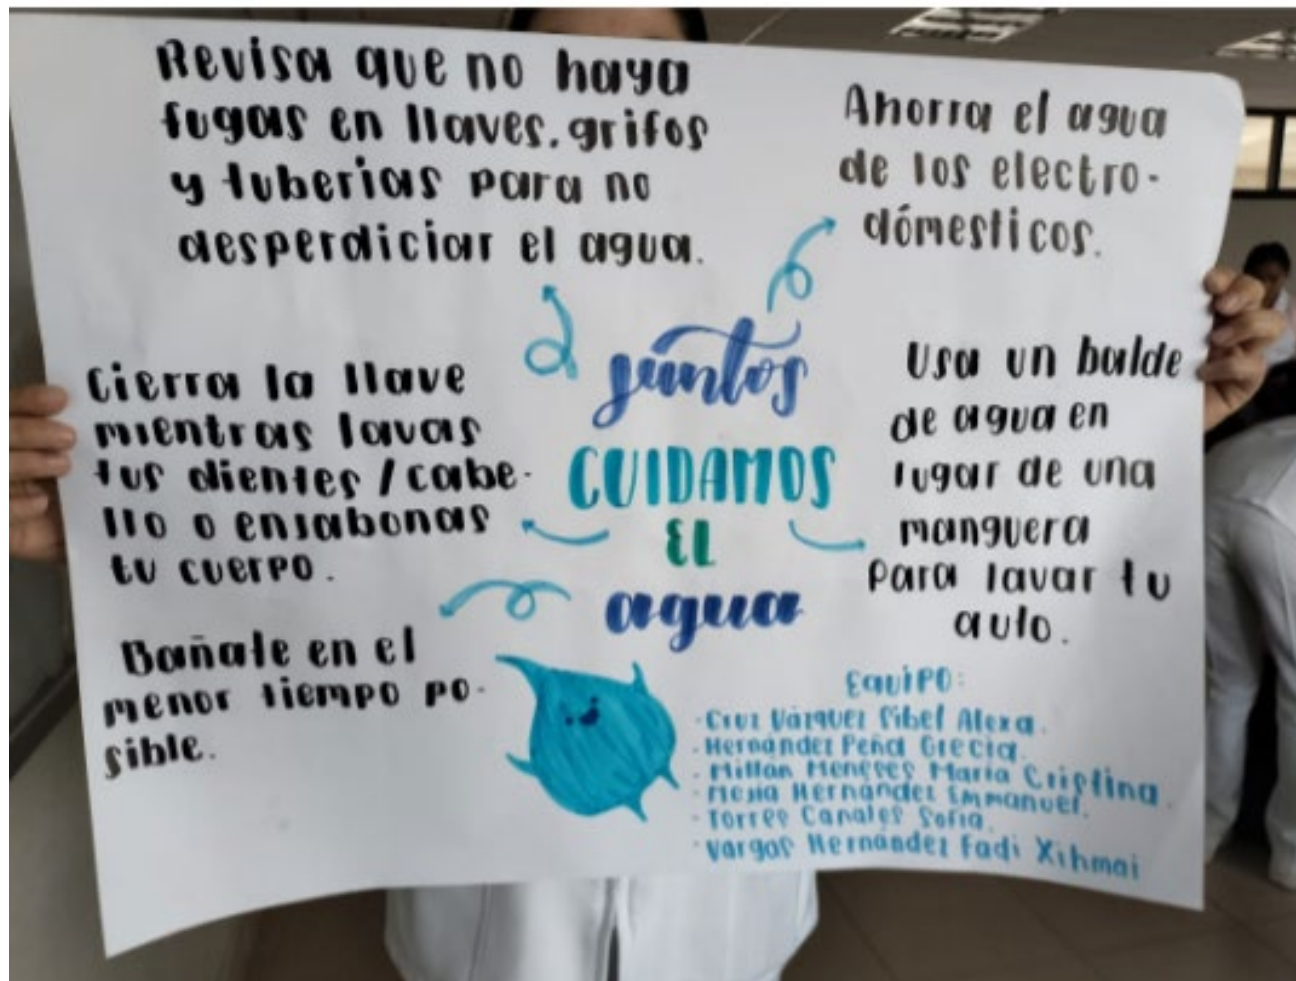 Revisa que no haya
fugas en llaves, grifos
y tuberias para no
desperdiciar el agua.
Ahorra el agua
de los electro-
dómesticos.
Juntos
CUIDAMOS
EL
agua
Cierra la llave
mientras lavas
tus dientes / cabe-
llo o ensabonas
tu cuerpo.
Usa un balde
de agua en
lugar de una
manguera
para lavar tu
auto.
Bañate en el
menor tiempo po-
sible.
Equipo:
· Cruz Vázquez Sibel Alexa.
· Hernández Peña Grecia.
· Millan Meneses Maria Cristina.
· Mejia Hernández Emmanuel.
· Torres Canales Sofia.
· Vargas Hernández Fadi Xihmai